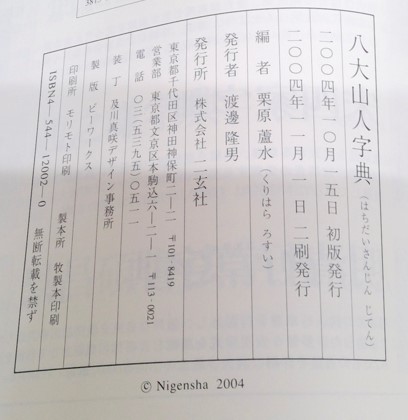 八大山人字典（はちだいさんじん じてん）
二〇〇四年一〇月一五日 初版発行
二〇〇四年一一月 一日 二刷発行
編者 栗原蘆水（くりはら ろすい）
発行者 渡邊隆男
発行所 株式会社 二玄社
東京都千代田区神田神保町二―二 〒101-8419
営業部 東京都文京区本駒込六―二―一 〒113-0021
電話 〇三（五三九五）〇五一一
装丁 及川真咲デザイン事務所
製版 ビーワークス
印刷所 モリモト印刷
製本所 牧製本印刷
ISBN4―544―12002―0 無断転載を禁ず
© Nigensha 2004